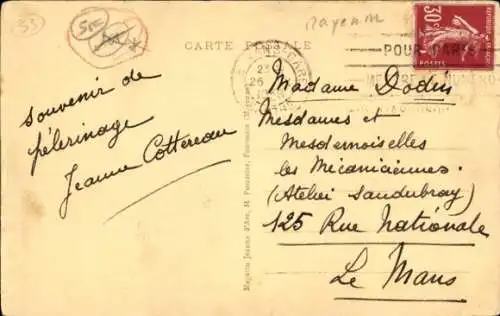 53
5f
mayenne
CARTE POSTALE
30c
POSTES
POUR PARIS
23
26
souvenir de
pélerinage
Jeanne Cottereau
Madame Dodin
Mesdames et
Mesdemoiselles
les Mécaniciennes.
(Atelier Sandubray)
125 Rue Nationale
Le Mans
Magasin Jeanne d'Arc, M.